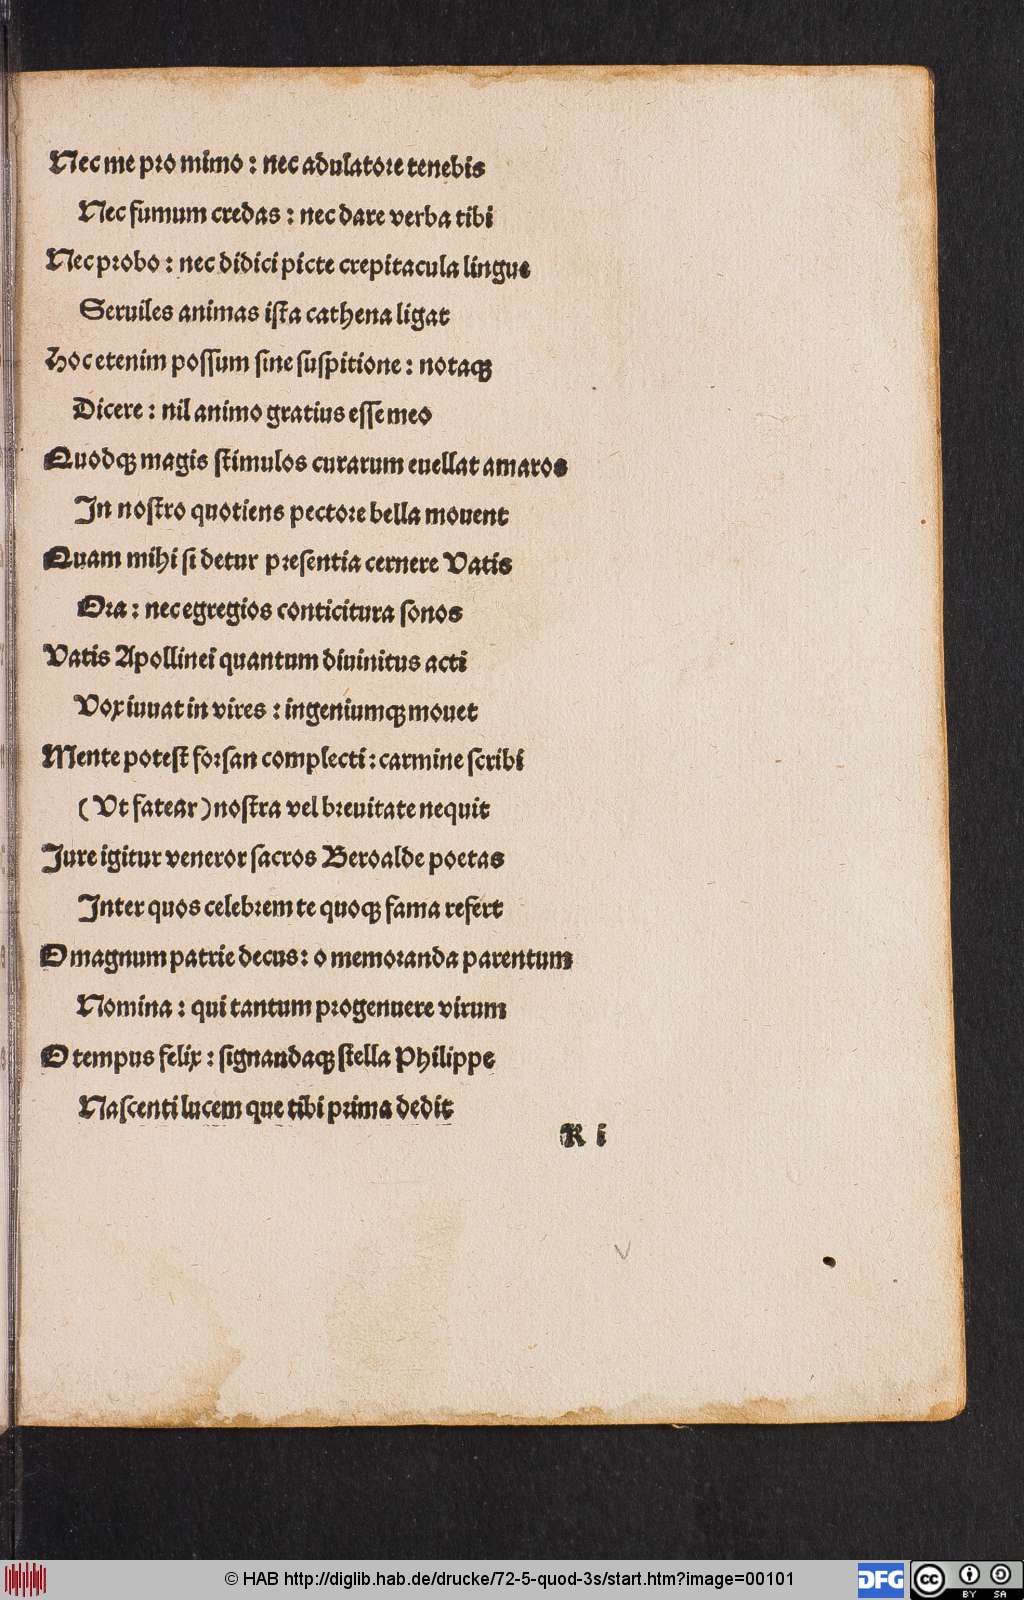 Nec me pro mimo : nec adulatore tenebis
Nec fumum credas : nec dare verba tibi
Nec probo : nec didici picte crepitacula lingue
Seruiles animas ista cathena ligat
Hoc etenim possum sine suspitione : notaqꝫ
Dicere : nil animo gratius esse meo
Quodqꝫ magis stimulos curarum euellat amaros
In nostro quotiens pectore bella mouent
Quam mihi si detur presentia cernere Vatis
Ora : nec egregios conticitura sonos
Vatis Apollinei quantum diuinitus acti
Vox iuuat in vires : ingeniumqꝫ mouet
Mente potest forsan complecti : carmine scribi
( Vt fatear ) nostra vel breuitate nequit
Iure igitur veneror sacros Beroalde poetas
Inter quos celebrem te quoqꝫ fama refert
O magnum patrie decus : o memoranda parentum
Nomina : qui tantum progenuere virum
O tempus felix : signandaqꝫ stella Philippe
Nascenti lucem que tibi prima dedit
K i
© HAB http://diglib.hab.de/drucke/72-5-quod-3s/start.htm?image=00101
DFG
cc BY SA